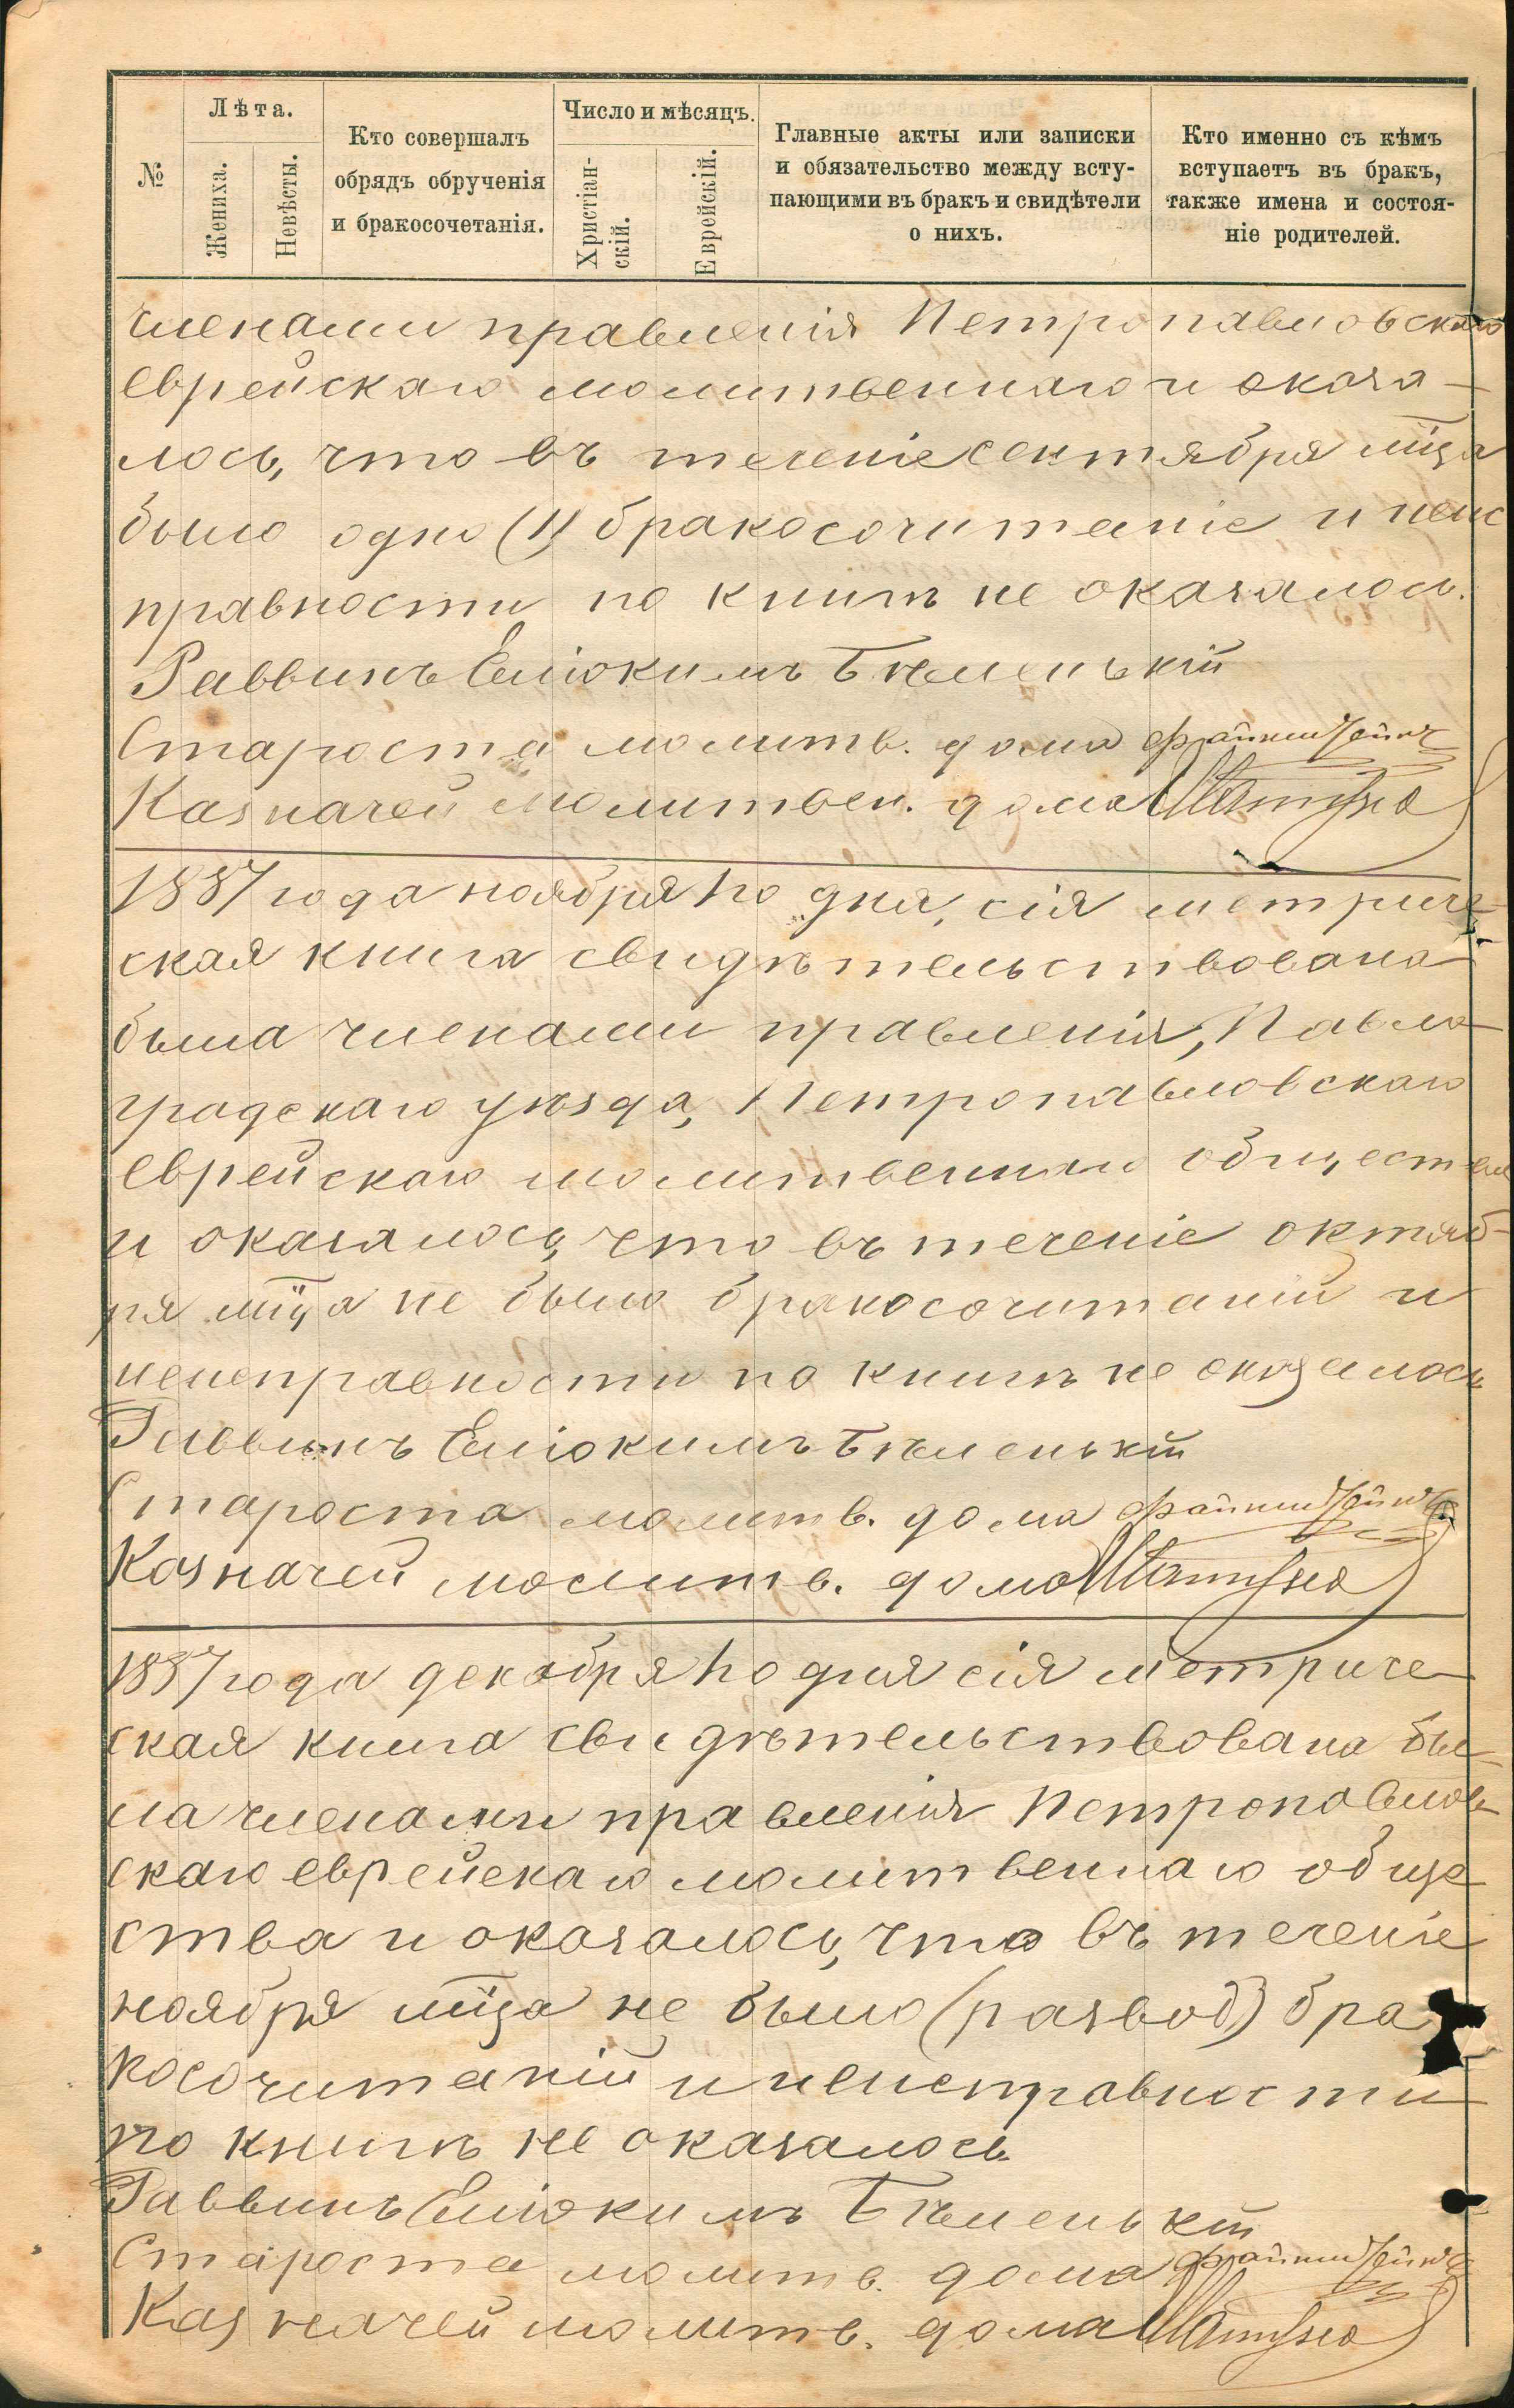 №
Лѣта.
Жениха.
Невѣсты.
Кто совершалъ
обрядъ обрученія
и бракосочетанія.
Число и мѣсяцъ.
Христіан-
скій.
Еврейскій.
Главные акты или записки
и обязательство между всту-
пающими въ бракъ и свидѣтели
о нихъ.
Кто именно съ кѣмъ
вступаетъ въ бракъ,
также имена и состоя-
ніе родителей.
членами правленія Петропавловскаго
еврейскаго молитвеннаго и оказа-
лось, что въ теченіе сентября мѣца
было одно (1) бракосочитаніе и неис
правности по книгѣ не оказалось.
Раввинъ Еліокимъ Бѣленькій
Староста молитв. дома
Казначей молитвен. дома
1887 года ноября 1го дня, сія метриче-
ская книга свидѣтельствована
была членами правленія, Павло-
градскаго уѣзда, Петропавловскаго
еврейскаго молитвеннаго общества
и оказалось, что въ теченіе октяб-
ря мѣца не было бракосочитаній и
неисправности по книгѣ не оказалось
Раввинъ Еліокимъ Бѣленькій
Староста молитв. дома
Казначей молитв. дома
1887 года декабря 1го дня сія метриче-
ская книга свидѣтельствована бы-
ла членами правленія Петропавлов-
скаго еврейскаго молитвеннаго обще-
ства и оказалось, что въ теченіе
ноября мѣца не было (развод) бра
косочитаній и неисправности
по книгѣ не оказалось
Раввинъ Еліокимъ Бѣленькій
Староста молитв. дома
Казначей молитв. дома